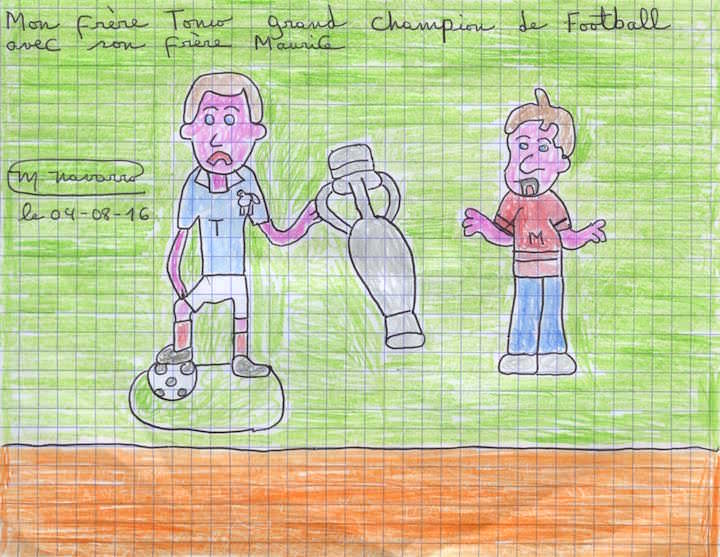 Mon frère Tonio grand Champion de Football
avec son frère Maurice
M Navarro
le 04-08-16
T
M